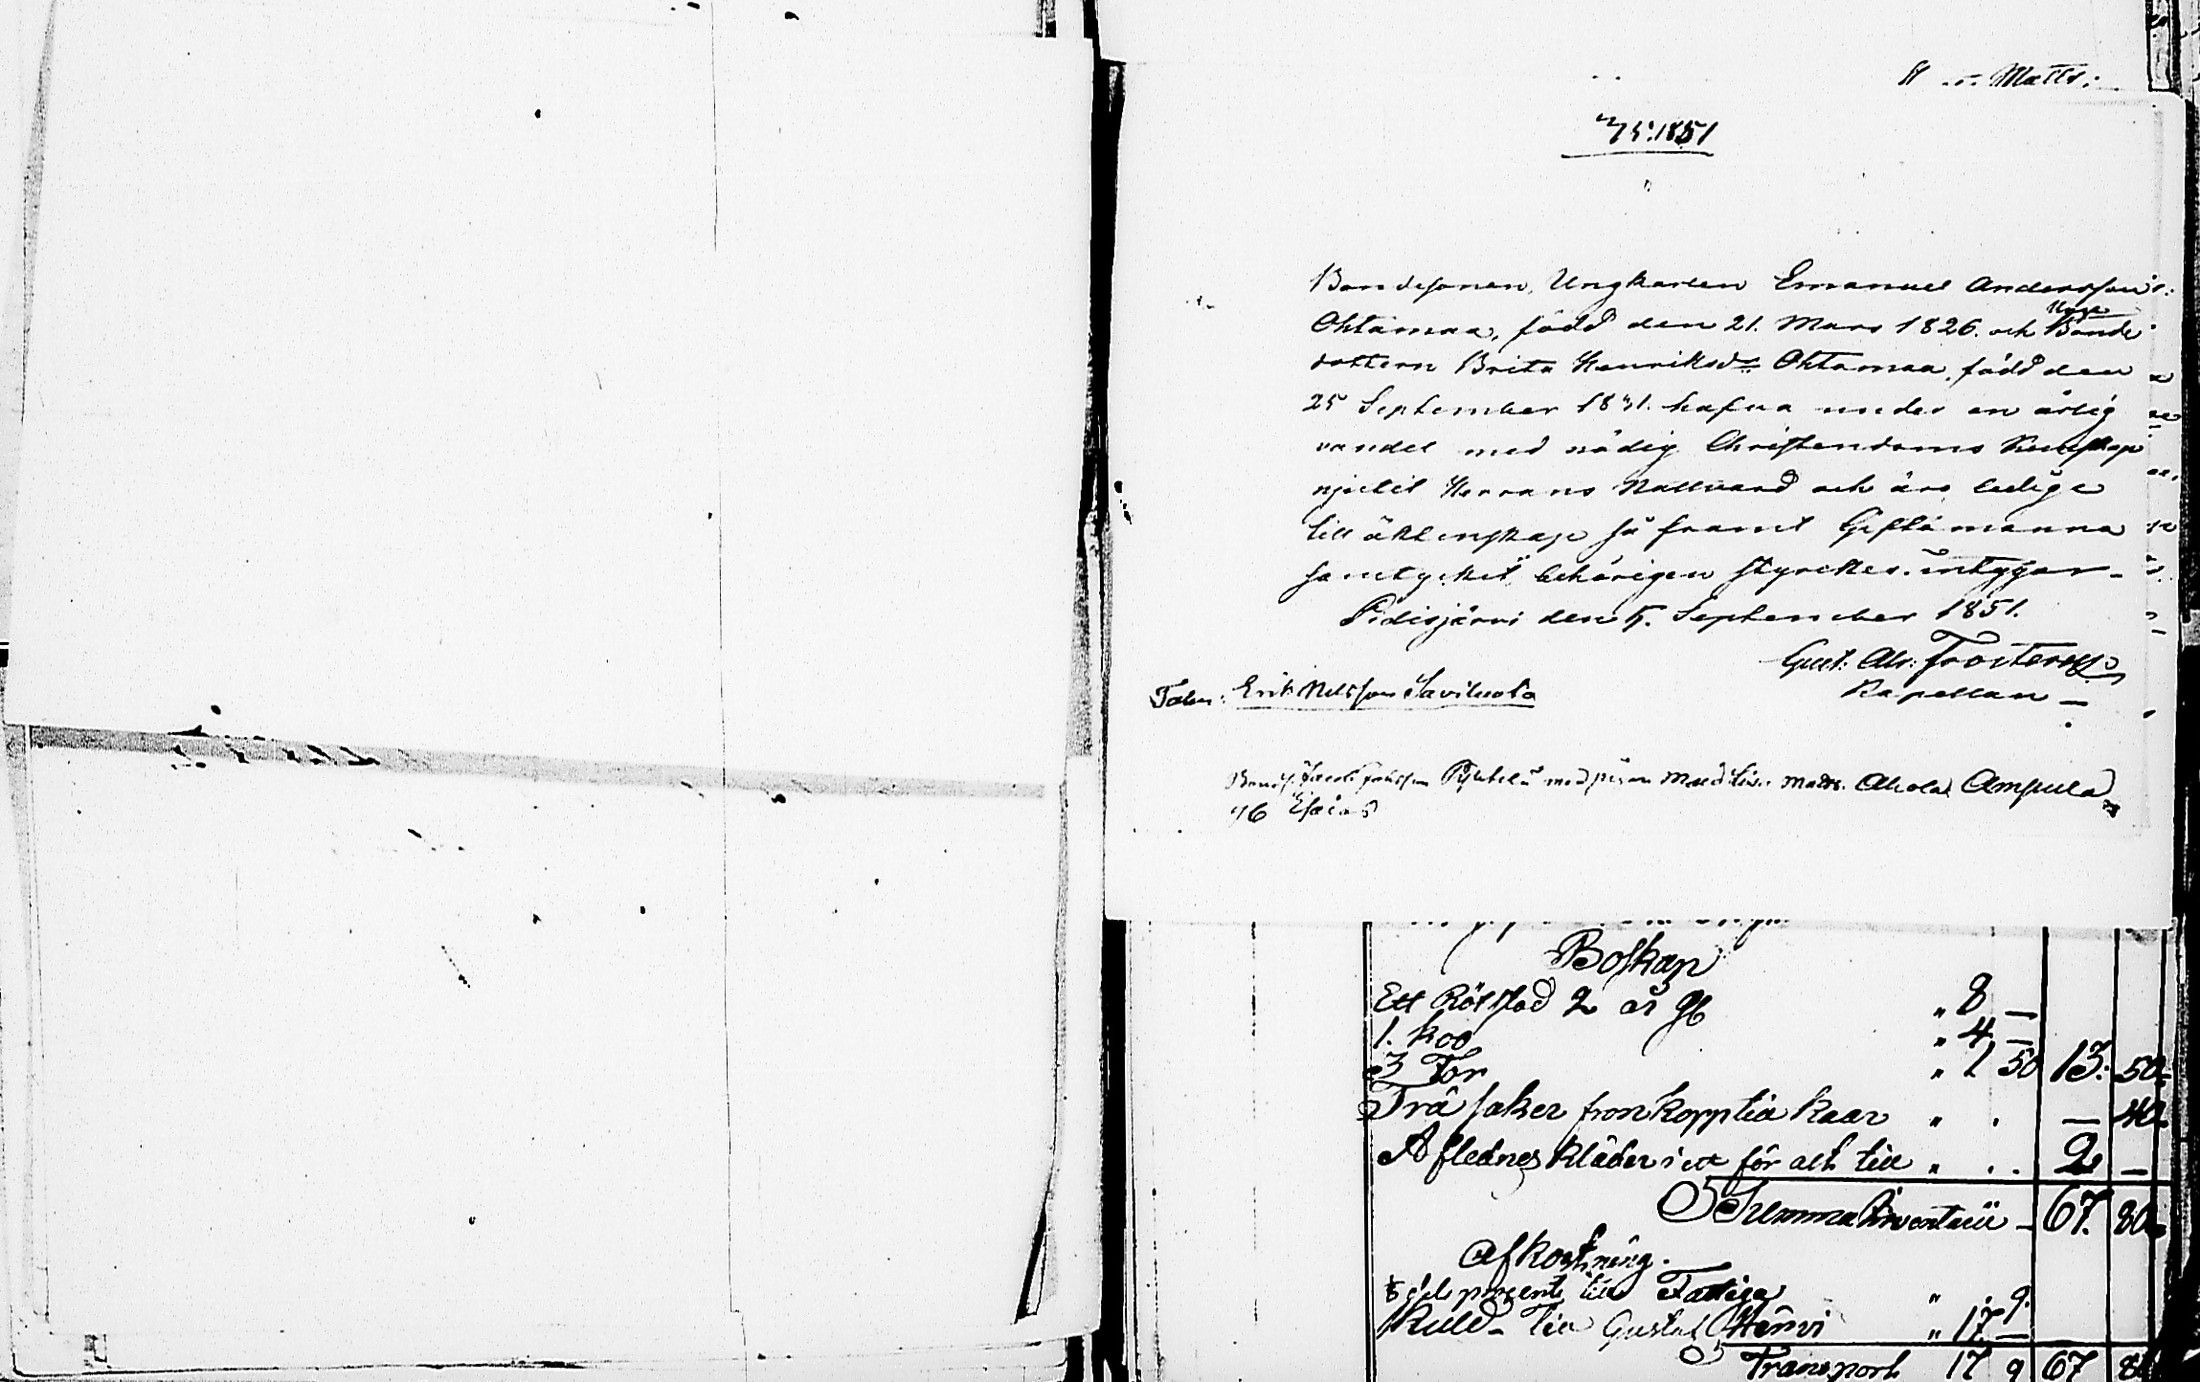 Matts:
1851
Bondesonen, Ungkarlen Emanuel Andersson
Ohtamaa, född den 21. Mars 1826. och Bonde
Piga
dottern Brita Henriksdr Ohtamaa, född den
25 September 1831. hafva under en ärlig
vandel med nödig Christendoms Kunskap
njutit Herrans Nattvard och äro ledige
till äktenskap så framt Giftomanna
samtycket behörigen styrckes. intygar
Pidisjärvi den 5. September 1851.
Gust: Alr: Frosterus
Kapellan
Talm: Erik Nilsson Saviluoto
Bond. Jacob Johansson med pigan Matts. Ahola Ampula
76 Esaias
Boskap
Ett Röt stod 2 år gl " 8 —
1. koo " 4 —
3 For " 1 50 13: 50
Trä saker fron kopp till kaar " . — 40
Aflednes kläder i ett för alt till " . . 2 —
Summa Inventarii — 67. 80
Afkortning.
procent till Fattiga " . 9.
Skuld till Gustaf Hänvi " 17 —
Transport 17 9 67 80